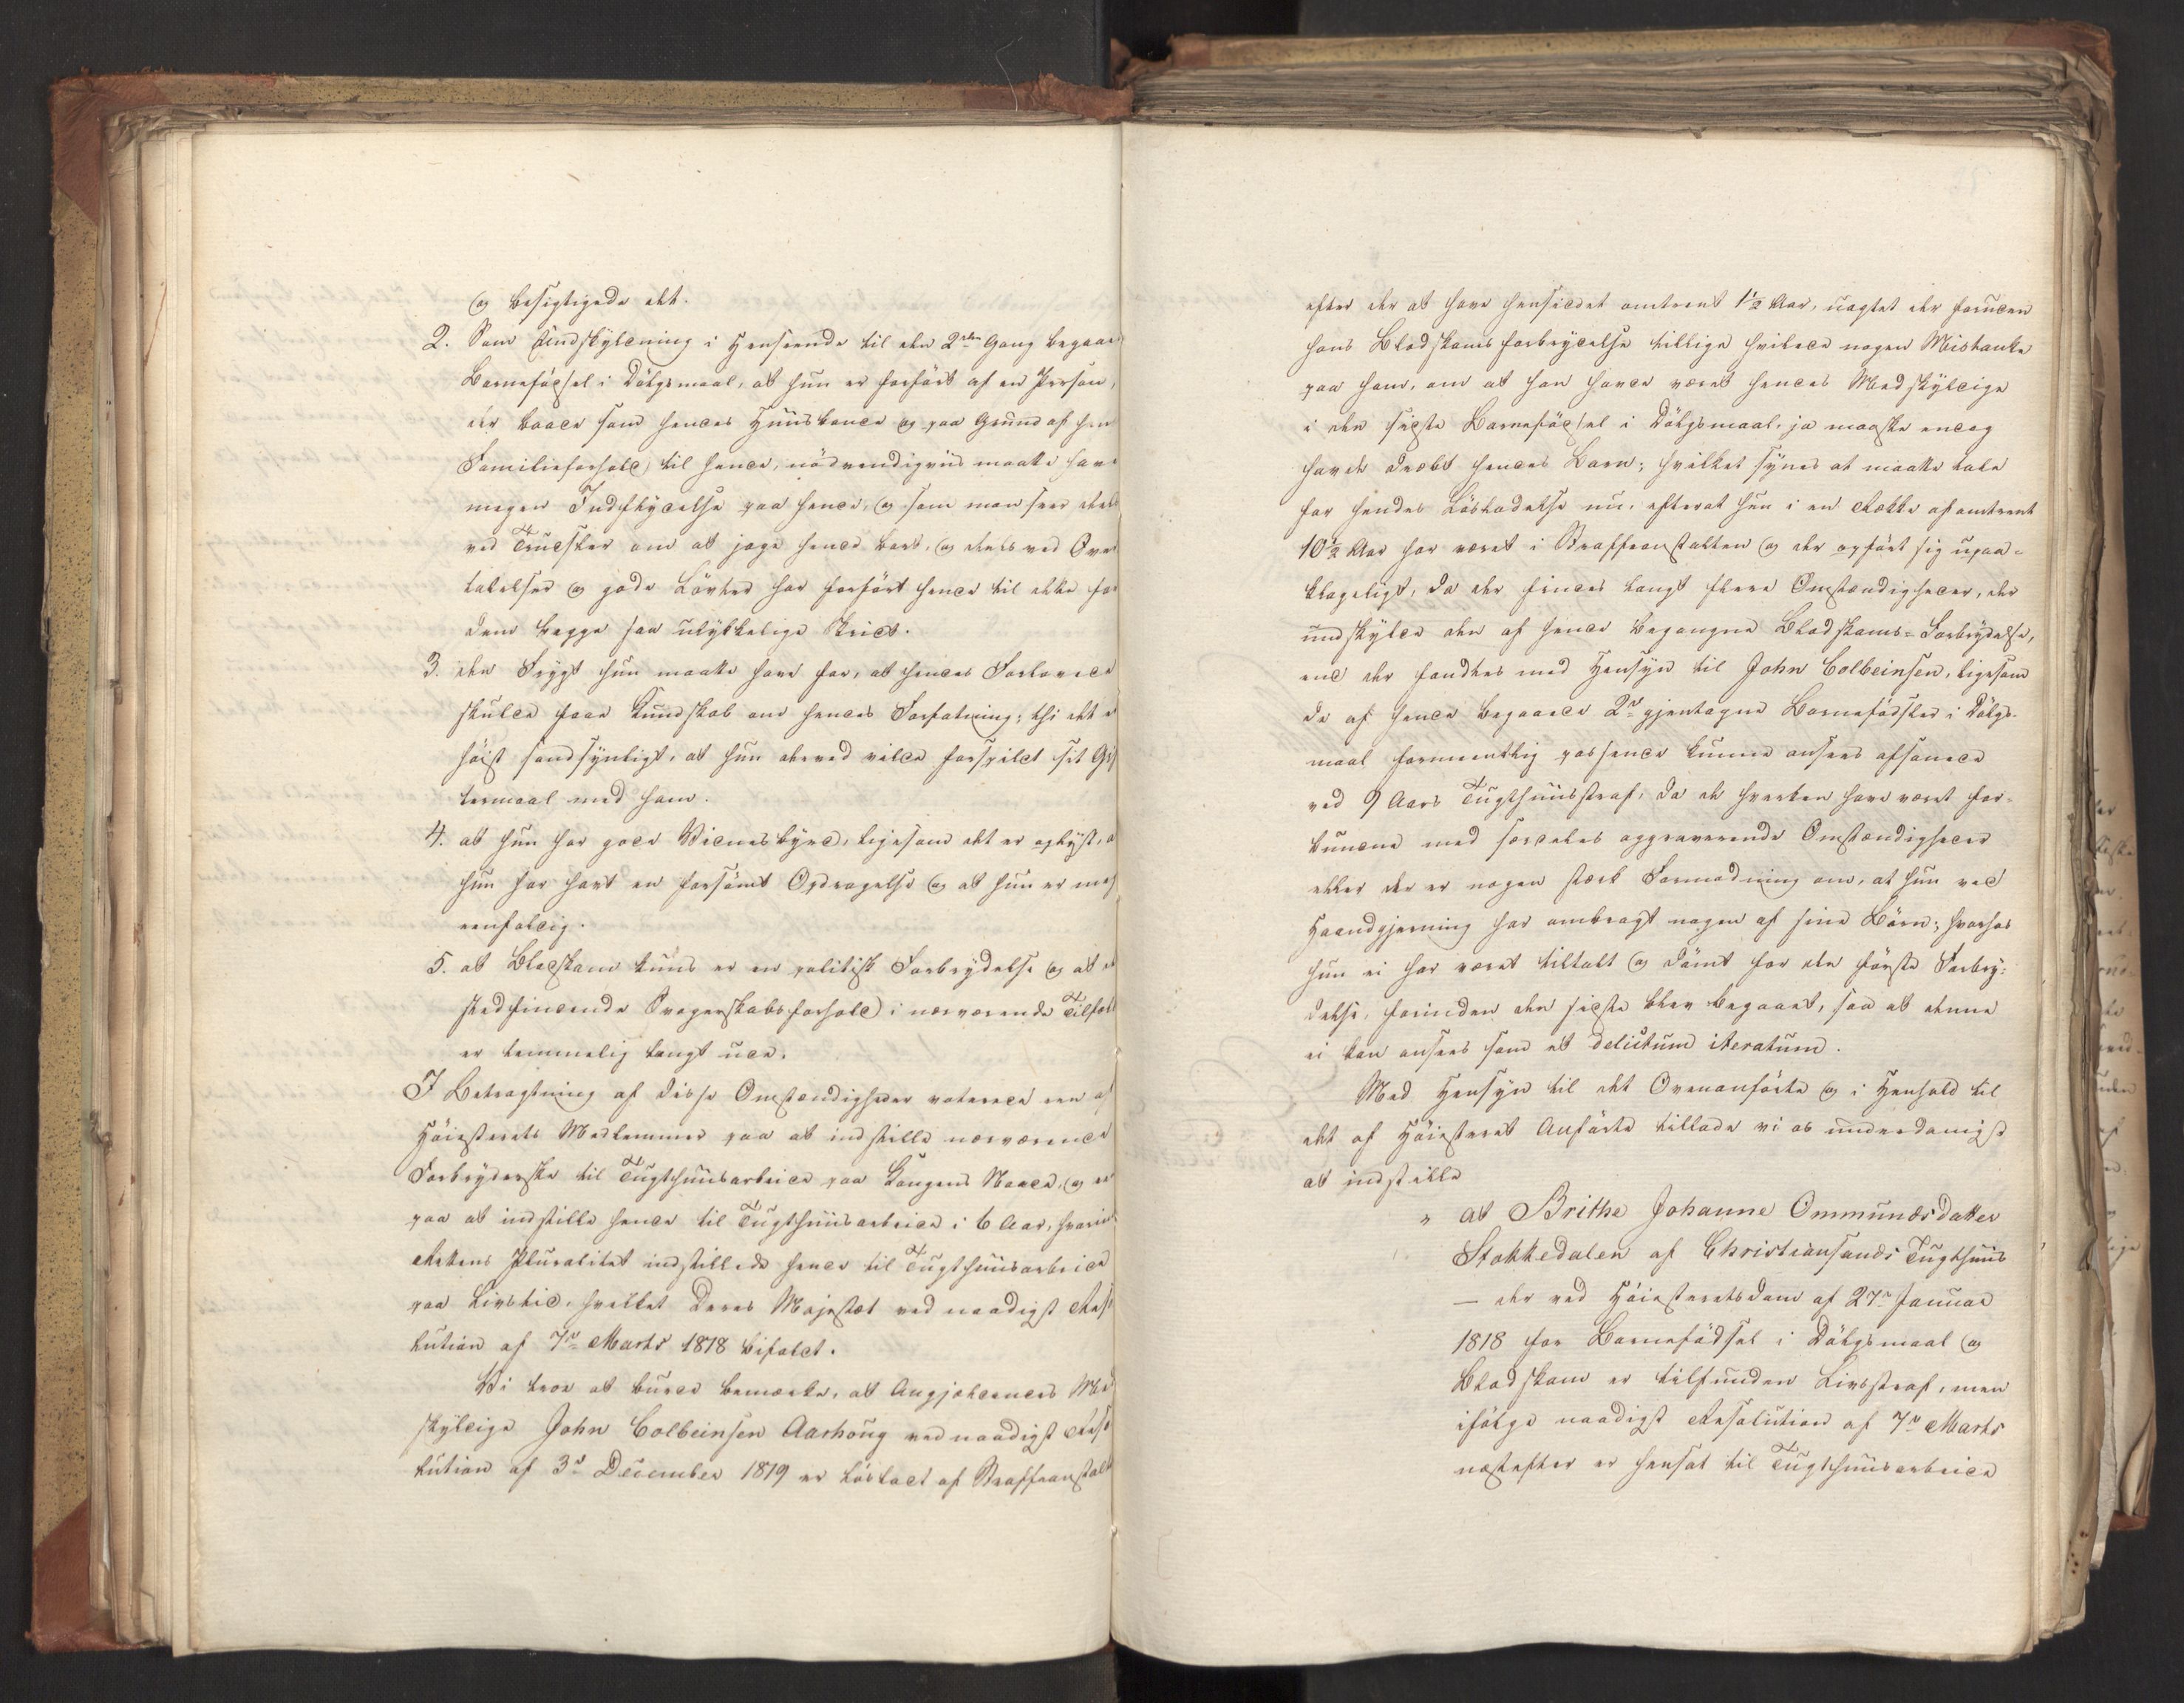 og besigtigede det.
2. Som Undskyldning i Henseende til den 2den Gang begaaede
Barnefødsel i Dølgsmaal, at hun er forført af en Person,
der baade som hendes Huusbonde og paa Grund af hans
Familieforhold til hende, nødvendigviis maatte have
megen Indflydelse paa hende, og som man seer deels
ved Trudsler om at jage hende bort, og deels ved Over
talelser og gode Løvter har forført hende til dette for
dem begge saa ulykkelige Skridt.
3. den Frygt hun maatte have for, at hendes Forlovede
skulde faae Kundskab om hendes Forfatning; thi det er
høist sandsynligt, at hun derved vilde forspildt sit Gif
termaal med ham.
4. at hun har gode Vidnesbyrd, ligesom det er oplyst, at
hun har havt en forsømt Opdragelse og at hun er meget
eenfoldig.
5. at Blodskam kuns er en politisk Forbrydelse og at det
stedfindende Svogerskabsforhold i nærværende Tilfælde
er temmelig langt ude.
I Betragtning af disse Omstændigheder voterede een af
Høiesterets Medlemmer paa at indstille nærværende
Forbryderske til Tugthuusarbeide paa Kongens Naade, og en
paa at indstille hende til Tugthuusarbeide i 6 Aar, hvorimod
Rettens Pluralitet indstillede hende til Tugthuusarbeide
paa Livstid, hvilket Deres Majestæt ved naadigst Reso
lution af 7de Marts 1818 bifaldt.
Vi troe at burde bemærke, at Angjeldendes Med
skyldige John Colbeinsen Aarhoug ved naadigst Reso
lution af 3de December 1819 er løsladt af Straffeanstalten
efter der at have hensiddet omtrent 1½ Aar, uagtet der foruden
hans Blodskamsforbrydelse tillige hvilede nogen Mistanke
paa ham, om at han havde været hendes Medskyldige
i den sidste Barnefødsel i Dølgsmaal, ja maaske endog
havde dræbt hendes Barn; hvilket synes at maatte tale
for hendes Løsladelse nu, efterat hun i en Række af omtrent
10½ Aar har været i Straffeanstalten og der opført sig upaa-
klageligt, da der findes langt flere Omstændigheder, der
undskylde den af hende begangne Blodskams-Forbrydelse,
end der fandtes med Hensyn til John Colbeinsen, ligesom
de af hende begaaede 2de gjentagne Barnefødsler i Dølgs-
maal formeentlig passende kunne ansees afsonede
ved 9 Aars Tugthuusstraf, da de hverken have været for-
bundne med særdeles aggraverende Omstændigheder
eller der er nogen stærk Formodning om, at hun ved
Haandgjerning har ombragt nogen af sine Børn; hvorhos
hun ei har været tiltalt og dømt for den første Forbry-
delse, forinden den sidste blev begaaet, saa at denne
ei kan ansees som et delictum iteratum.
Med Hensyn til det Ovenanførte og i Henhold til
det af Høiesteret Anførte tillade vi os underdanigst
at indstille
" at Brithe Johanne Ommundsdatter
Stokkedalen af Christiansands Tugthuus
— der ved Høiesteretsdom af 27de Januar
1818 for Barnefødsel i Dølgsmaal og
Blodskam er tilfunden Livsstraf, men
ifølge naadigst Resolution af 7de Marts
næstefter er hensat til Tugthuusarbeide